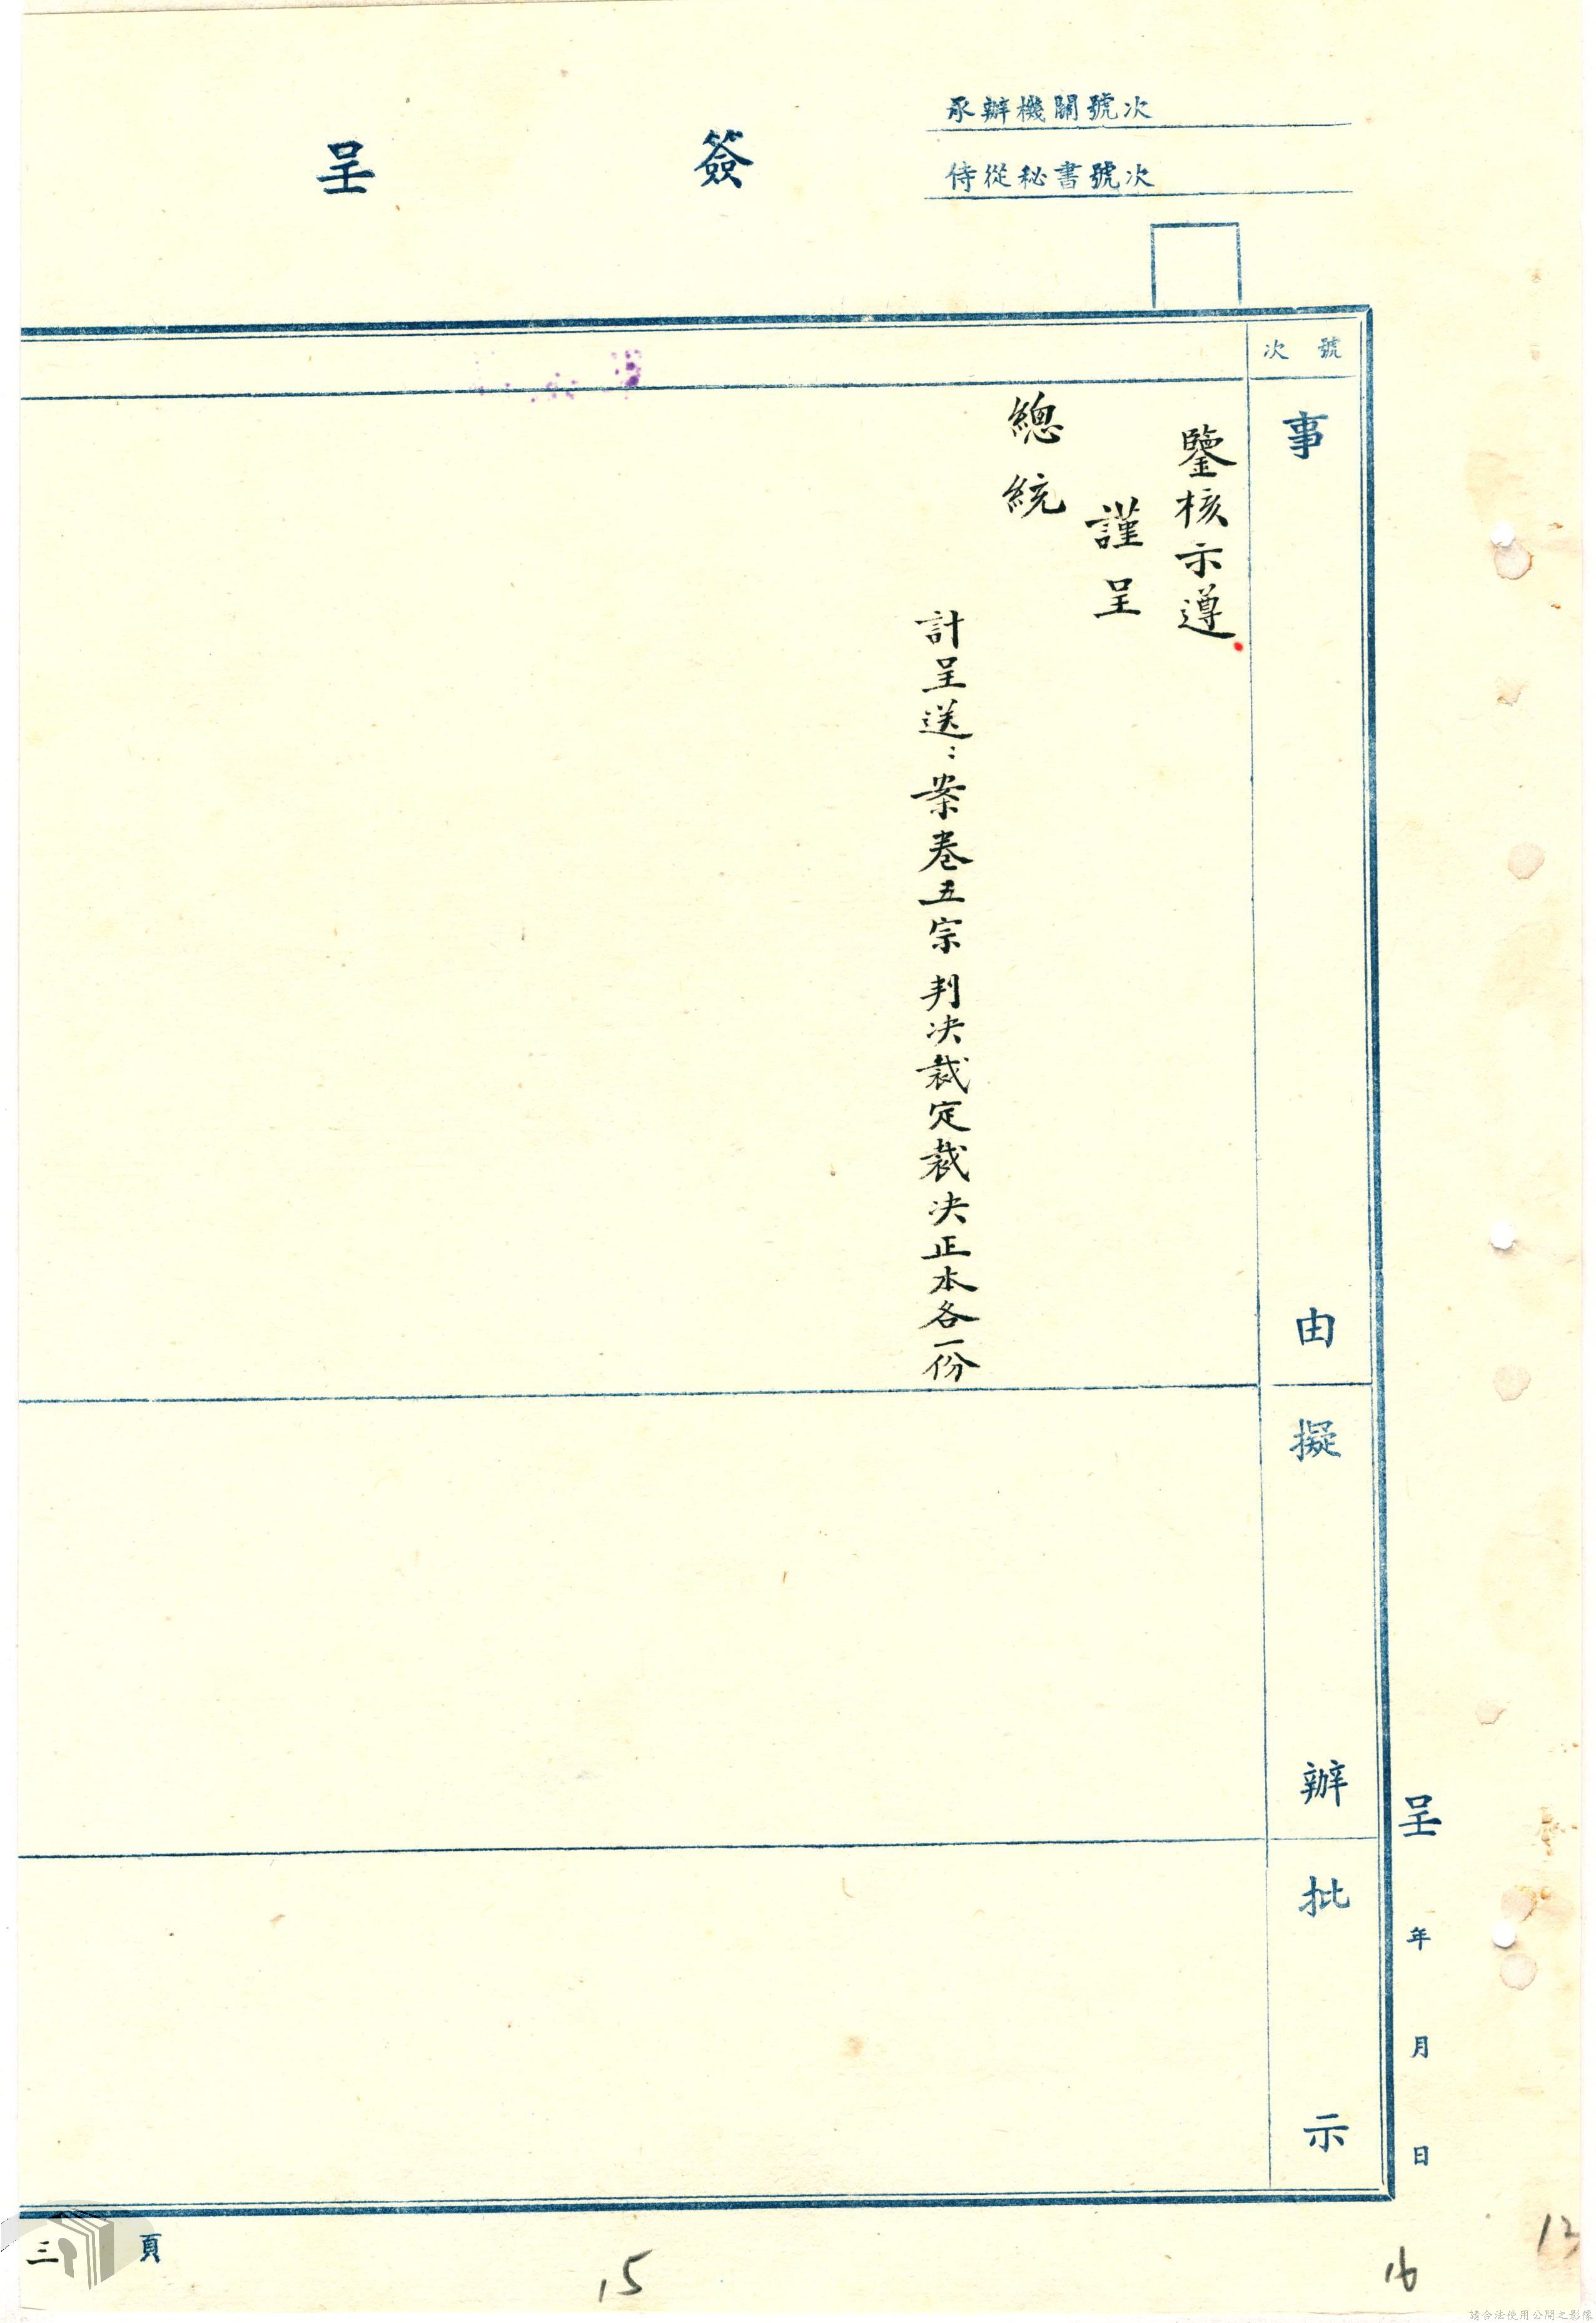 承辦機關號次
侍從秘書號次
簽呈
號次
事由
擬辦
批示
鑒核示遵
謹呈
總統
計呈送：案卷五宗 判决裁定裁决正本各一份
呈 年 月 日
頁 三
15
16
13
請合法使用公開之影像